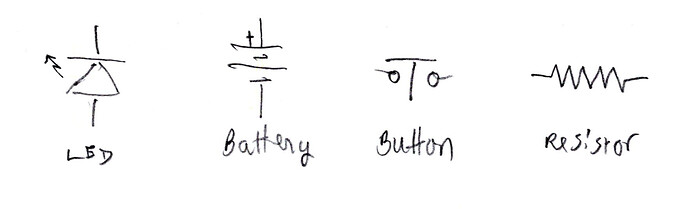 +
LED
Battery
Button
Resistor